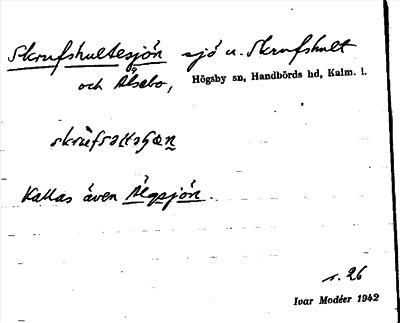 Skrufshultesjön sjö u. Skrufshult
och Älsebo, Högsby sn, Handbörds hd, Kalm. l.
Kallas även Älgsjön.
s. 26
Ivar Modéer 1942